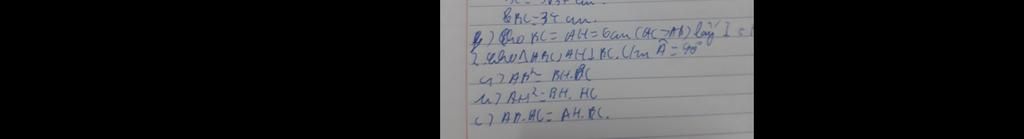 BC = 34 cm.
b) Cho BC = AH = 6cm (AC > AB) lấy I
2. Cho △ABC, AH ⊥ BC. C/m  = 90°
a) AB² = BH.BC
b) AH² = BH. HC
c) AB.AC = AH.BC.